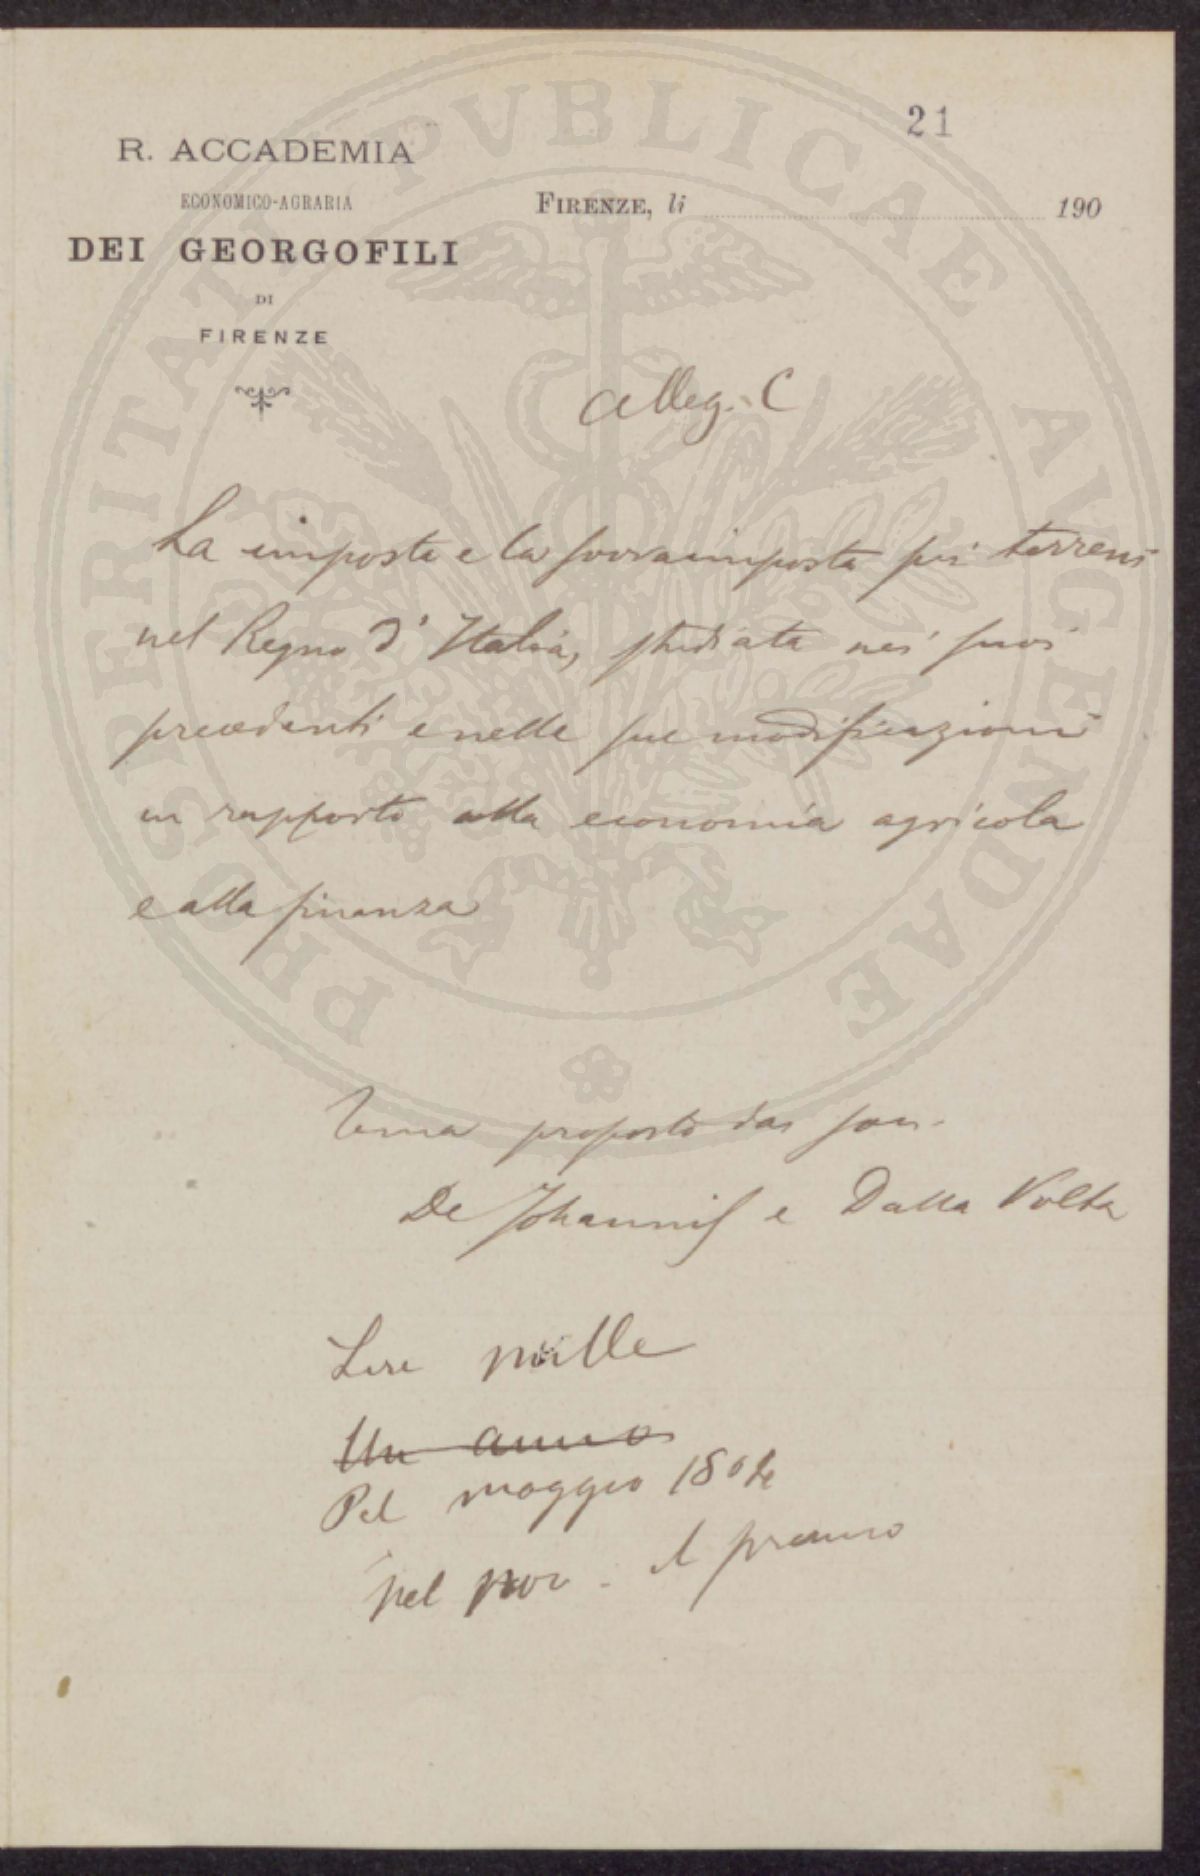 21
R. ACCADEMIA
ECONOMICO-AGRARIA
DEI GEORGOFILI
DI
FIRENZE
FIRENZE, li 190
PROSPERITATI PVBLICAE AVGENDAE
Alleg. C
La imposta e la sovraimposta sui terreni
nel Regno d'Italia, studiata nei suoi
precedenti e nelle sue modificazioni
in rapporto alla economia agricola
e alla finanza
Tema proposto dai soci.
De Johannis e Dalla Volta
Lire mille
Un anno
Pel maggio
pel nov. il premio